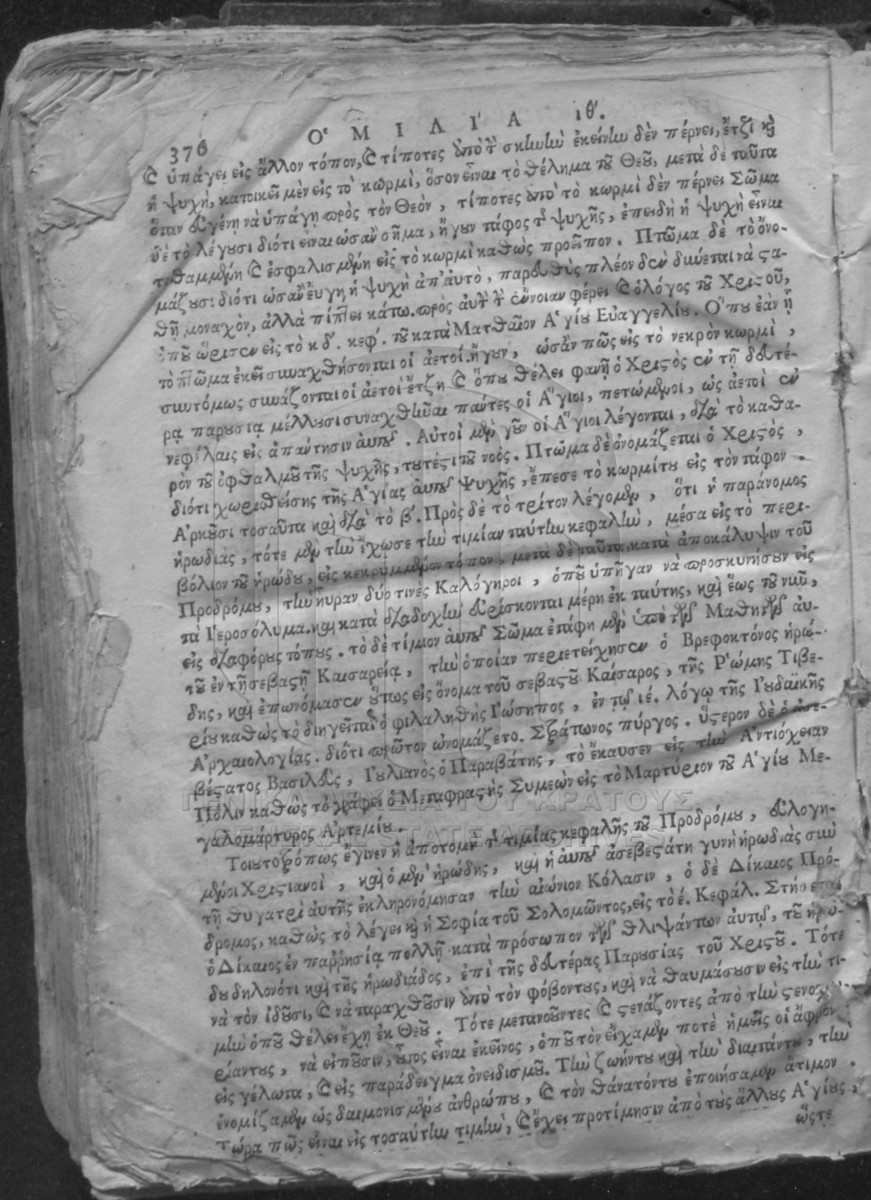 376 ΟΜΙΛΙΑ ιθ΄.
καὶ ὑπάγει εἰς ἄλλον τόπον, καὶ τίποτες ἀπὸ τὴν σκηνὴν ἐκείνην δὲν πέρνει, ἔτζι καὶ
ἡ ψυχὴ, κατοικεῖ μὲν εἰς τὸ κωρμὶ, ὅσον εἶναι τὸ θέλημα τοῦ Θεοῦ, μετὰ δὲ ταῦτα
ὅταν εὐγένῃ νὰ ὑπάγῃ πρὸς τὸν Θεὸν, τίποτες ἀπὸ τὸ κωρμὶ δὲν πέρνει Σῶμα
δὲ τὸ λέγουσι διότι εἶναι ὡσὰν σῆμα, ἤγουν τάφος τῆς ψυχῆς, ἐπειδὴ ἡ ψυχὴ εἶναι
τεθαμμένη καὶ ἐσφαλισμένη εἰς τὸ κωρμὶ καθὼς προεῖπον. Πτῶμα δὲ τὸ ὀνο-
μάζουσι διότι ὡσὰν εὔγῃ ἡ ψυχὴ ἀπ' αὐτὸ, παρευθὺς πλέον δὲν δύνεται νὰ στα-
θῇ μοναχὸν, ἀλλὰ πίπτει κάτω. πρὸς αὐτὴν τὴν ἔννοιαν φέρει καὶ ὁ λόγος τοῦ Χριστοῦ,
ὁποῦ ὥρισεν εἰς τὸ κδ΄. κεφ. τοῦ κατὰ Ματθαῖον Ἁγίου Εὐαγγελίου. Ὅπου ἐὰν ᾖ
τὸ πτῶμα ἐκεῖ συναχθήσονται οἱ ἀετοί. ἤγουν, ὡσὰν πῶς εἰς τὸ νεκρὸν κωρμὶ,
συντόμως συνάζονται οἱ ἀετοὶ ἔτζη καὶ ὅπου θέλει φανῇ ὁ Χριστὸς ἐν τῇ δευτέ-
ρᾳ παρουσίᾳ μέλλουσι συναχθῆναι πάντες οἱ Ἅγιοι, πετώμενοι, ὡς ἀετοὶ ἐν
νεφέλαις εἰς ἀπάντησιν αὐτοῦ. Αὐτοὶ μὲν γοῦν οἱ Ἅγιοι λέγονται, διὰ τὸ καθα-
ρὸν τοῦ ὀφθαλμοῦ τῆς ψυχῆς, τουτέστι τοῦ νοός. Πτῶμα δὲ ὀνομάζεται ὁ Χριστὸς,
διότι χωρισθείσης τῆς Ἁγίας αὐτοῦ Ψυχῆς, ἔπεσε τὸ κωρμίτου εἰς τὸν τάφον.
Ἀρκοῦσι τοσαῦτα καὶ διὰ τὸ β΄. Πρὸς δὲ τὸ τρίτον λέγομεν, ὅτι ἡ παράνομος
ἡρωδιὰς, τότε μὲν τὴν ἔχωσε τὴν τιμίαν ταύτην κεφαλὴν, μέσα εἰς τὸ περι-
βόλιον τοῦ ἡρώδου, εἰς κεκρυμμένον τόπον, μετὰ δὲ ταῦτα κατὰ ἀποκάλυψιν τοῦ
Προδρόμου, τὴν ηὗραν δύο τινὲς Καλόγηροι, ὁποῦ ὑπῆγαν νὰ προσκυνήσουν εἰς
τὰ Ἱεροσόλυμα. καὶ κατὰ διαδοχὴν εὑρίσκονται μέρη ἐκ ταύτης, καὶ ἕως τοῦ νῦν,
εἰς διαφόρους τόπους. τὸ δὲ τίμιον αὐτοῦ Σῶμα ἐτάφη μὲν ὑπὸ τῶν Μαθητῶν αὐ-
τοῦ ἐν τῇ σεβαστῇ Καισαρείᾳ, τὴν ὁποίαν περιετείχησεν ὁ Βρεφοκτόνος ἡρώ-
δης, καὶ ἐπωνόμασεν οὕτως εἰς ὄνομα τοῦ σεβαστοῦ Καίσαρος, τῆς Ῥώμης Τιβε-
ρίου καθὼς τὸ διηγεῖται ὁ φιλαληθὴς Ἰώσηπος, ἐν τῷ ιέ. λόγῳ τῆς Ἰουδαϊκῆς
Ἀρχαιολογίας. διότι πρῶτον ὠνομάζετο. Στράτωνος πύργος. ὕστερον δὲ ὁ ἀσε-
βέστατος Βασιλεὺς, Ἰουλιανὸς ὁ Παραβάτης, τὸ ἔκαυσεν εἰς τὴν Ἀντιόχειαν
Πόλιν καθὼς τὸ γράφει ὁ Μεταφραστὴς Συμεὼν εἰς τὸ Μαρτύριον τοῦ Ἁγίου Με-
γαλομάρτυρος Ἀρτεμίου.
Τοιουτοτρόπως ἔγινεν ἡ ἀποτομὴ τῆς τιμίας κεφαλῆς τοῦ Προδρόμου, εὐλογη-
μένοι Χριστιανοὶ, καὶ ὁ μὲν ἡρώδης, καὶ ἡ αὐτοῦ ἀσεβεστάτη γυνὴ ἡρωδιὰς σὺν
τῇ θυγατρὶ αὐτῆς ἐκληρονόμησαν τὴν αἰώνιον Κόλασιν, ὁ δὲ Δίκαιος Πρό-
δρομος, καθὼς τὸ λέγει καὶ ἡ Σοφία τοῦ Σολομῶντος, εἰς τὸ έ. Κεφάλ. Στήσεται
ὁ Δίκαιος ἐν παῤῥησίᾳ πολλῇ κατὰ πρόσωπον τῶν θλιψάντων αὐτῷ, τοῦ ἡρώ-
δου δηλονότι καὶ τῆς ἡρωδιάδος, ἐπὶ τῆς δευτέρας Παρουσίας τοῦ Χριστοῦ. Τότε
νὰ τὸν ἰδοῦσι, καὶ νὰ παραχθοῦσιν ἀπὸ τὸν φόβοντους, καὶ νὰ θαυμάσουσιν εἰς τὴν τι-
μὴν ὁποῦ θέλει ἔχῃ ἐκ Θεοῦ. Τότε μετανοοῦντες καὶ στενάζοντες ἀπὸ τὴν στενοχω-
ρίαντους, νὰ εἰποῦσιν, οὗτος εἶναι ἐκεῖνος, ὁποῦ τὸν εἴχαμεν ποτὲ ἡμεῖς οἱ ἄφρονες
εἰς γέλωτα, καὶ εἰς παράδειγμα ὀνειδισμοῦ. Τὴν ζωήντου καὶ τὴν διαιτάντου, τὴν
ἐνομίζαμεν ὡς δαιμονισμένου ἀνθρώπου, καὶ τὸν θάνατόντου ἐποιήσαμεν ἄτιμον.
Τώρα πῶς εἶναι εἰς τοσαύτην τιμὴν, καὶ ἔχει προτίμησιν ἀπὸ τοὺς ἄλλους Ἁγίους,
ὥστε
ΓΕΝΙΚΑ ΑΡΧΕΙΑ ΤΟΥ ΚΡΑΤΟΥΣ
GENERAL STATE ARCHIVES